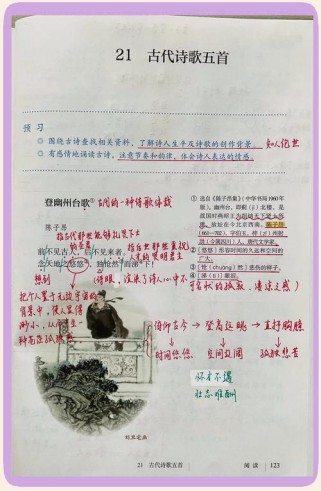 21 古代诗歌五首
预习
◎ 围绕古诗查找相关资料,了解诗人生平及诗歌的创作背景。 知人论世
◎ 有感情地诵读古诗,注意节奏和韵律,体会诗人表达的情感。
登幽州台歌① 古代的一种诗歌体裁
陈子昂
指古代那些能够礼贤下士
前不见古人,后不见来者。
念天地之悠悠②,独怆然③而涕④下!
想到
把个人置于无边宇宙的
背景中,使人显得
渺小,从而产生一
种苍茫孤独感
① 选自《陈子昂集》(中华书局1960年
版)。幽州台,即蓟(jì)北楼,是
战国时燕昭王为招纳天下贤士而
建,故址在今北京西南。陈子昂
(661—702),字伯玉,梓(zǐ)州射
洪(今属四川)人,唐代文学家。
②〔悠悠〕形容时间的久远和空间的
广大。
③〔怆(chuàng)然〕悲伤的样子。
④〔涕〕眼泪。
俯仰古今→登高远眺→直抒胸臆
时间悠悠 空间辽阔 孤独悲苦
怀才不遇
壮志难酬
刘旦宅画
21 古代诗歌五首 阅读 123